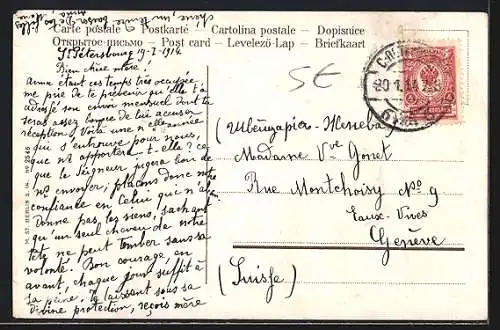 Carte postale — Postkarte — Cartolina postale — Dopisnice
Открытое письмо — Post card — Levelező-Lap — Briefkaart
St Pétersbourg 19-I-1914.
Bien chère mère!
Anna étant ces temps très occupée
me prie de te prévenir qu'elle t'a
adressé son envoi mensuel dont tu
seras assez bonne de lui accuser
réception. Voilà une nlle année
qui s'entrouve pour nous,
que ns apportera-t-elle? ce
que le Seigneur jugera bon de
ns envoyer; plaçons donc notre
confiance en Celui qui n'a-
donne pas les siens, sachant
qu'un seul cheveu de notre
tête ne peut tomber sans sa
volonté. Bon courage en
avant, chaque jour suffit à
sa peine. Te laissant sous sa
divine protection, reçois mère
chérie, un tendre baiser de tes filles
5€
(Швейцария-Женева)
Madame Vve Gonet
Rue Montchoisy No 9
Eaux-Vives
Genève
(Suisse)
M. ST. BERLIN S.W. No 2545